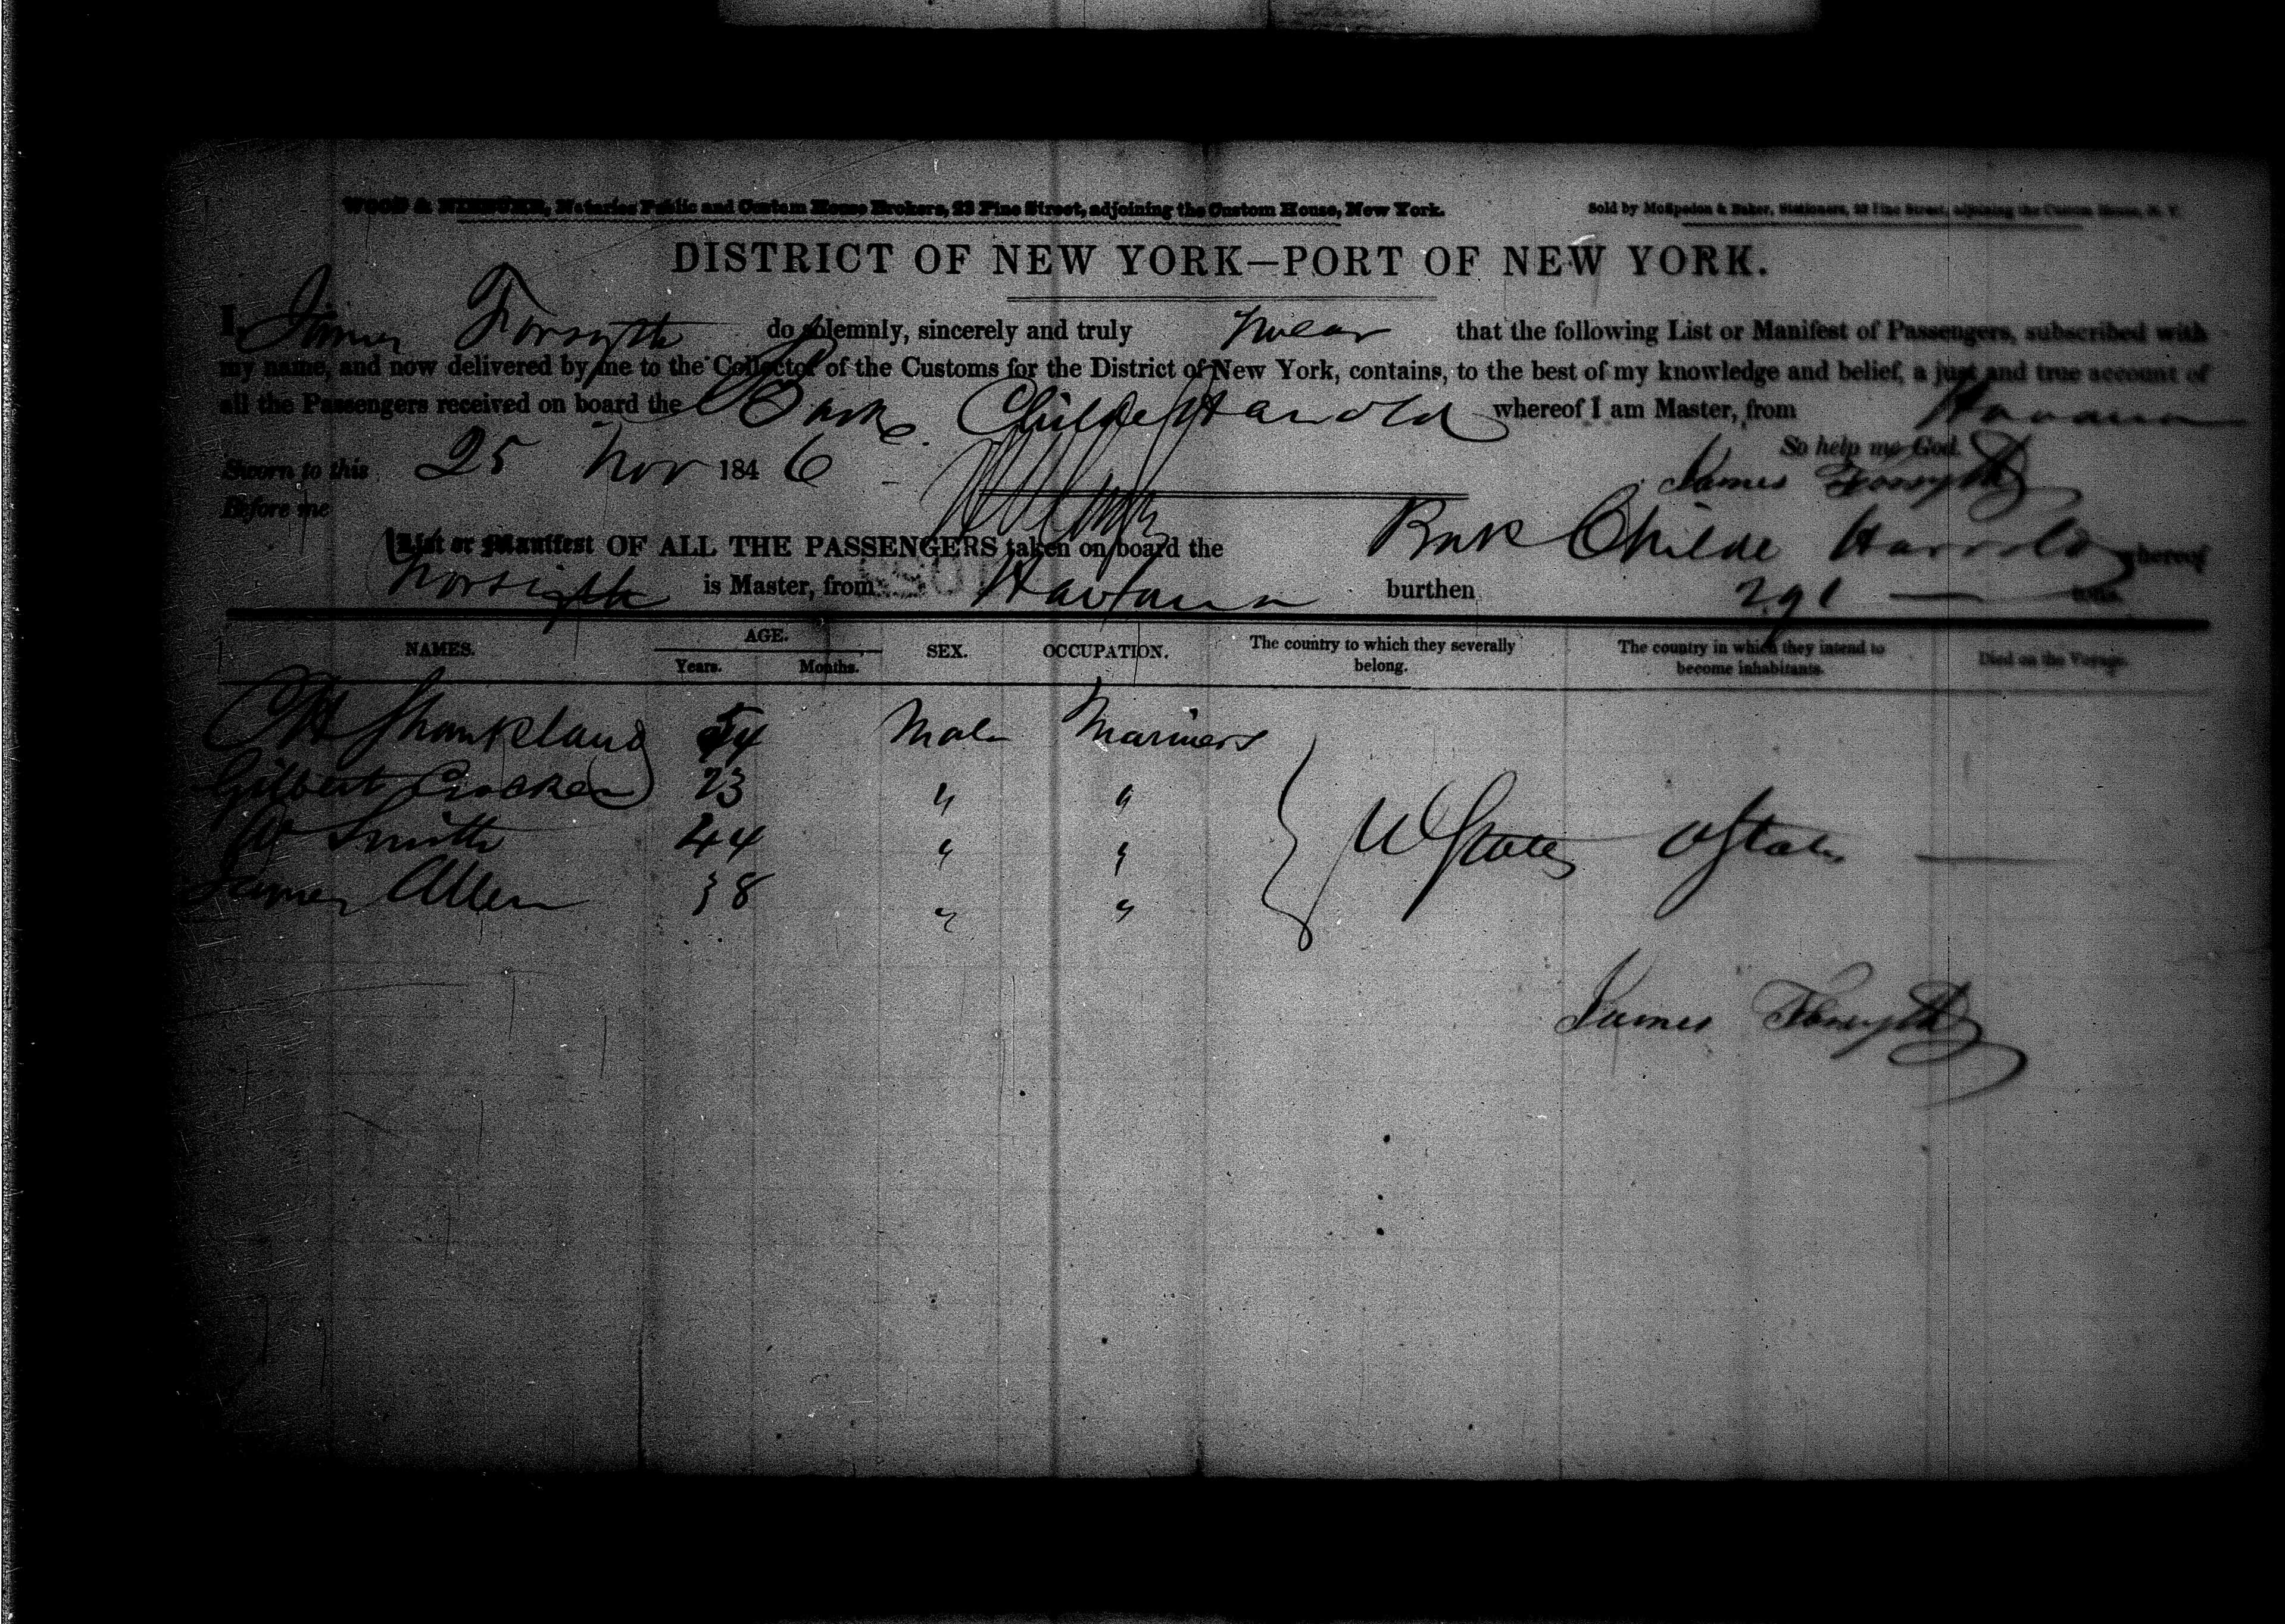 WOOD & NIEBUHR, Notaries Public and Custom House Brokers, 23 Pine Street, adjoining the Custom House, New York.
Sold by McSpedon & Baker, Stationers, 25 Pine Street, adjoining the Custom House, N. Y.
DISTRICT OF NEW YORK—PORT OF NEW YORK.
I, James Forsyth do solemnly, sincerely and truly swear that the following List or Manifest of Passengers, subscribed with
my name, and now delivered by me to the Collector of the Customs for the District of New York, contains, to the best of my knowledge and belief, a just and true account of
all the Passengers received on board the Bark Childe Harold whereof I am Master, from Havana
So help me God.
Sworn to this 25 Nov 1846 James Forsyth
Before me
List or Manifest OF ALL THE PASSENGERS taken on board the Bark Childe Harrold whereof
Forsigth is Master, from Havana burthen 291 — tons.
NAMES. AGE. SEX. OCCUPATION. The country to which they severally belong. The country in which they intend to become inhabitants. Died on the Voyage.
Years. Months.
Shankland 54 Male Mariners
Gilbert Crocker 23 " "
W Smith 44 " " U States U States —
James Allen 38 " "
James Forsyth